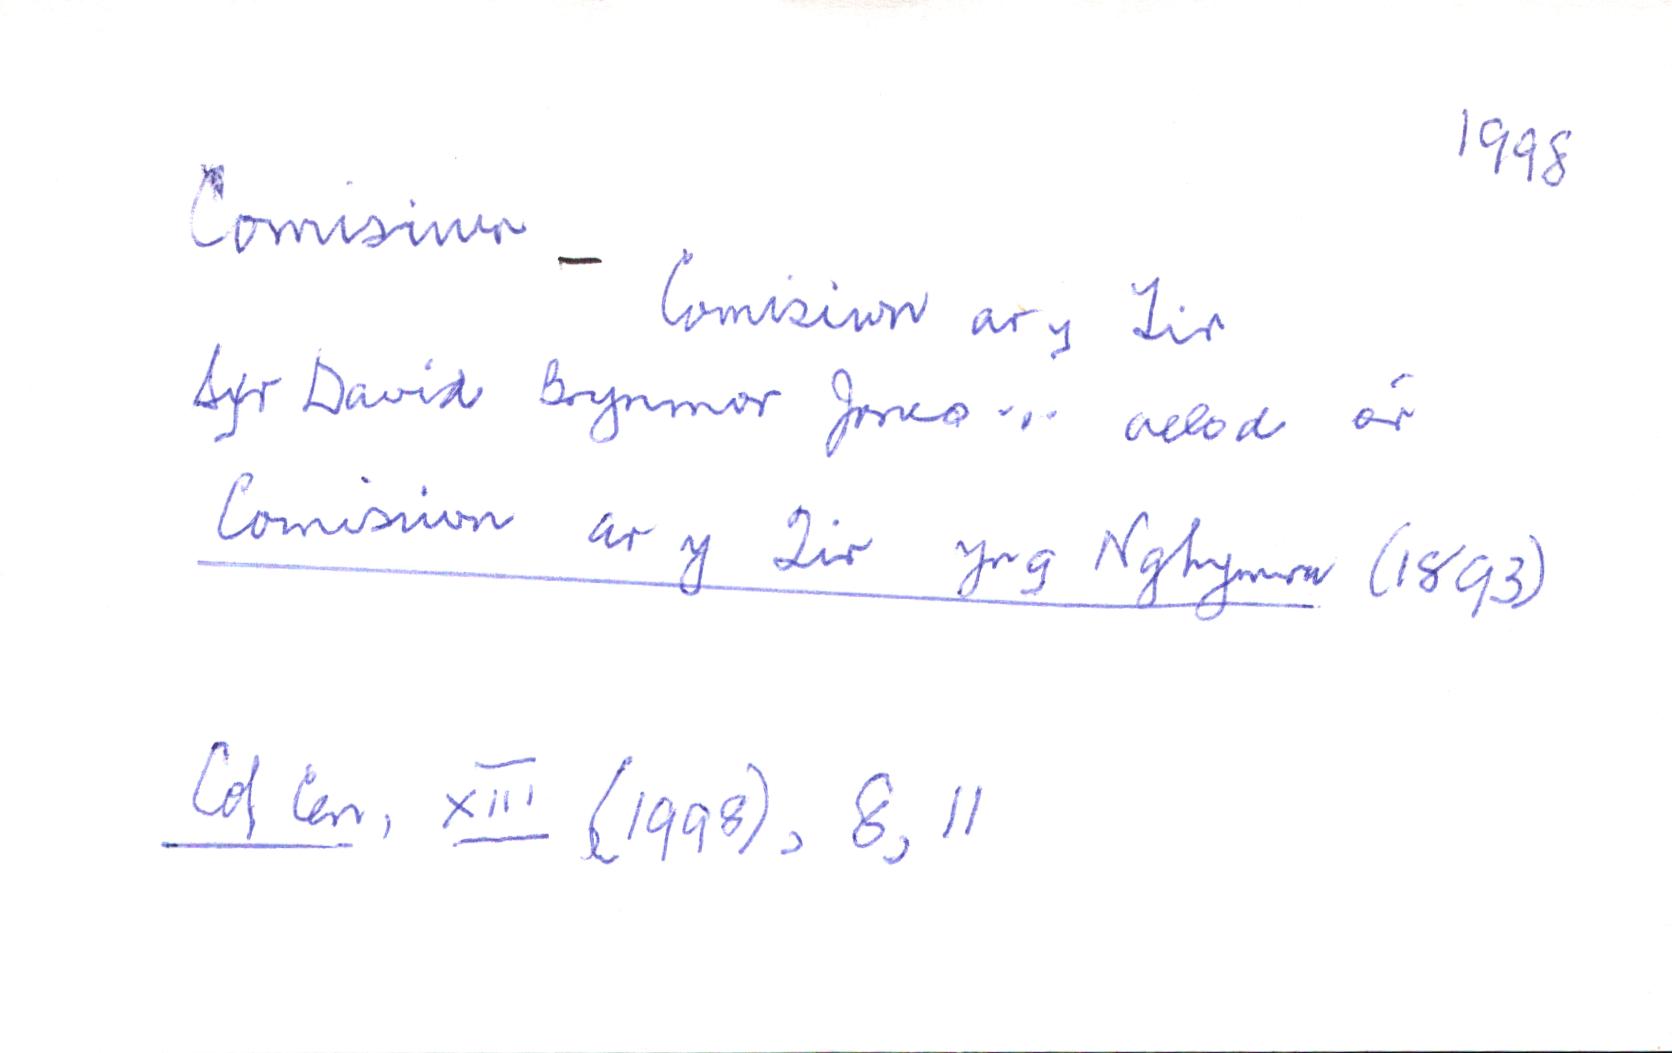 1998
Comisiwn –
Comisiwn ar y Tir
Syr David Brynmor Jones .... aelod o'r
Comisiwn ar y Tir yng Nghymru (1893)
Cof Cen, XIII (1998), 8, 11